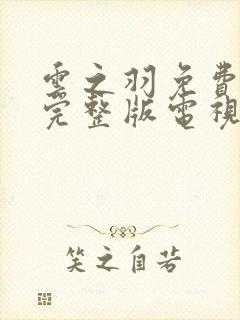 雲之羽免費
完整版電視
笑之自若